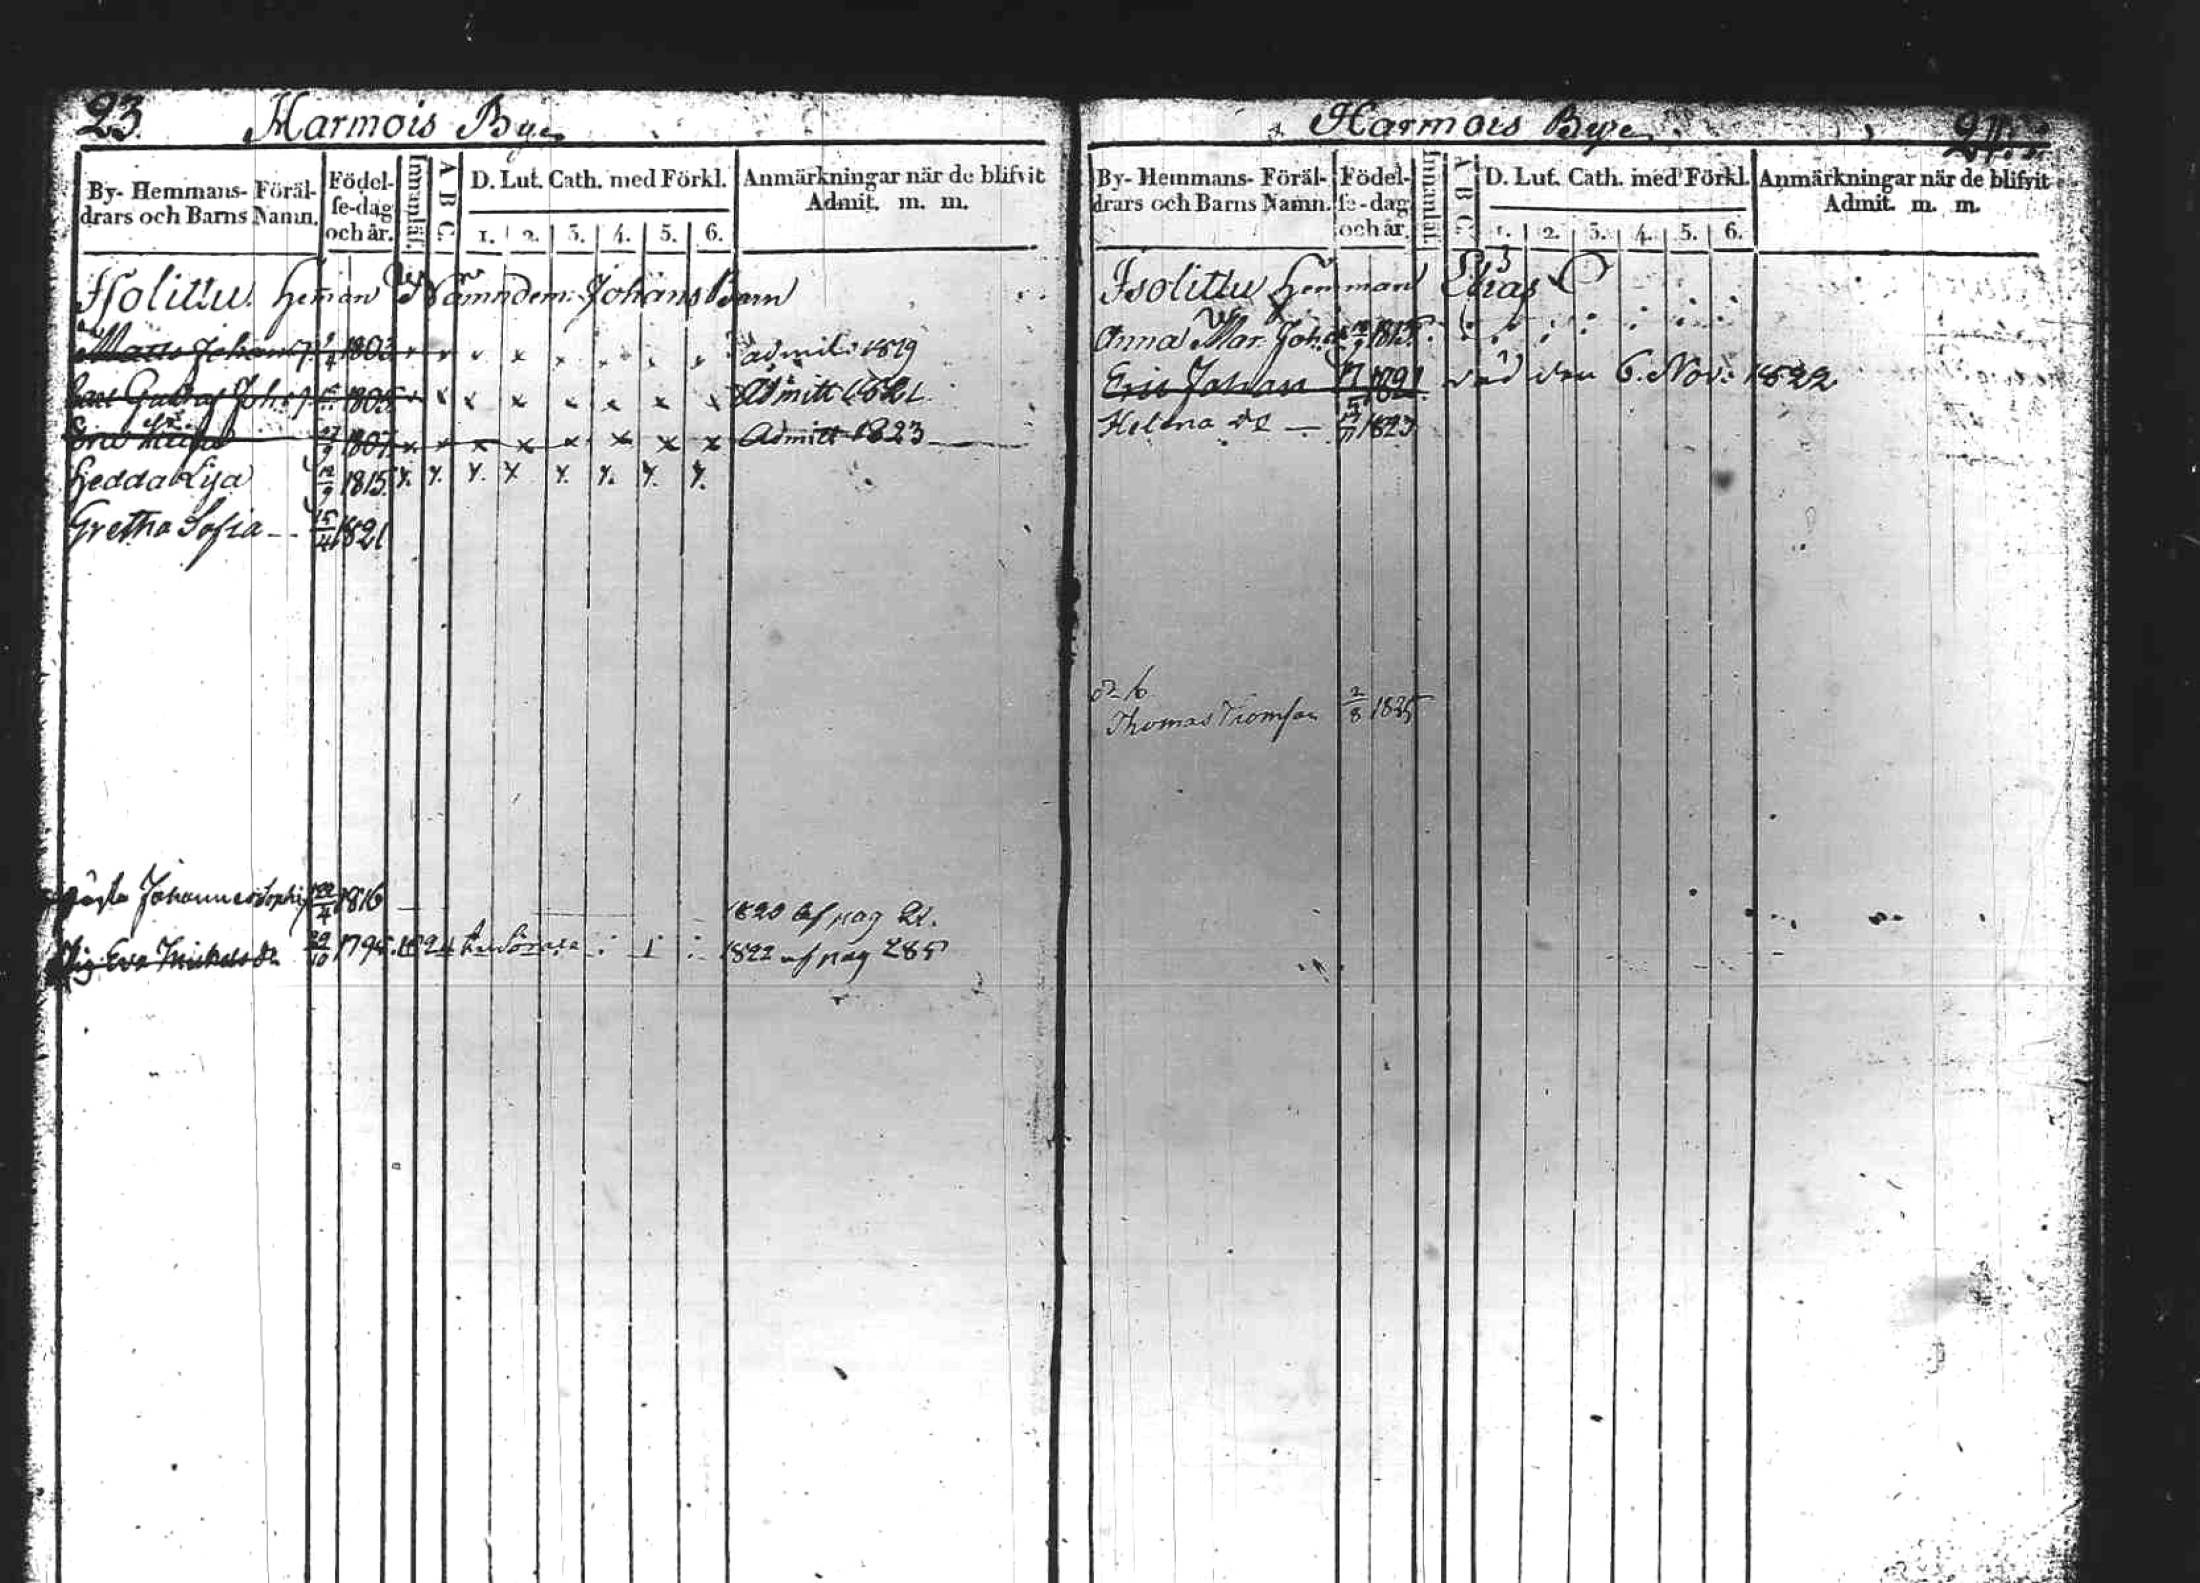 23. Harmois Bye
By- Hemmans- Föräl-
drars och Barns Namn.
Födel-
se-dag
och år.
Innanläs.
A B C.
D. Lut. Cath. med Förkl.
1. 2. 3. 4. 5. 6.
Anmärkningar när de blifvit
Admit. m. m.
Isolittu Heman Nämndem: Johans Barn
Matts Johan 1803 admit. 1819
Gustaf Joh. 1805 Admitt 1821
Eric 27/9 1807 x x x x x x x x Admitt 1823
Hedda Lisa 12/9 1815
Gretha Sofia 15/4 1821
Johanna Sophia 22/4 1816 1820 af pag 21.
Pig Eva Mickelsdr 29/10 1795 1824 1822 af pag 285
Harmois Bye 24.
By- Hemmans- Föräl-
drars och Barns Namn.
Födel-
se-dag
och år.
Innanläs.
A B C.
D. Lut. Cath. med Förkl.
1. 2. 3. 4. 5. 6.
Anmärkningar när de blifvit
Admit. m. m.
Isolittu Hemman Elias
Anna Mar. Joh. 1815
Eric Johan 1821 död den 6. Nov: 1822
Helena 1823
Thomas Thomson 2/8 1825